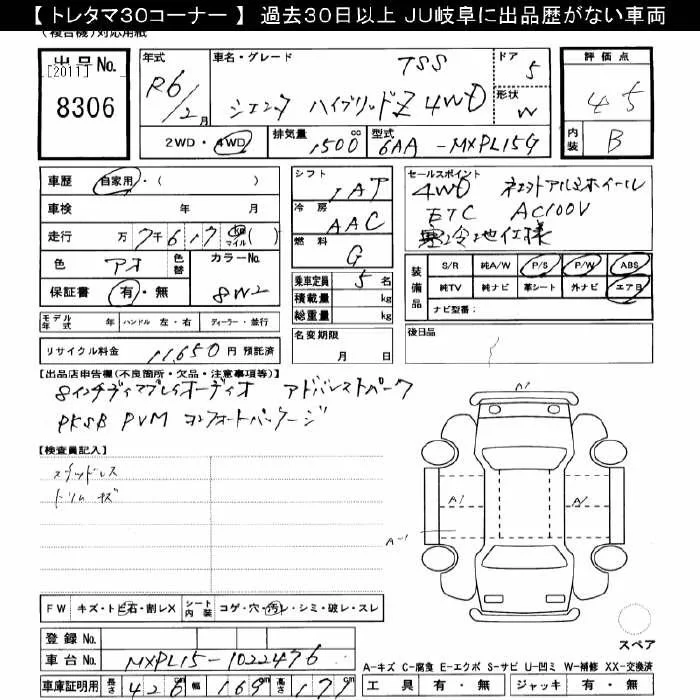 【 トレタマ30コーナー 】 過去30日以上 JU岐阜に出品歴がない車両
(複合機)対応用紙
出品No.
[2011]
8306
年式 R6/2月
車名・グレード TSS
シエンタ ハイブリッドZ 4WD
ドア 5
形状 W
評価点 4.5
内装 B
2WD・4WD 排気量 1500 cc 型式 6AA - MXPL15G
車歴 自家用・( )
車検 年 月
走行 万 7千617 km マイル ( )
色 アオ 色替 カラーNo. 8W2
保証書 有・無
シフト IAT
冷房 AAC
燃料 G
乗車定員 5名
積載量 kg
総重量 kg
セールスポイント
4WD ネエントアルミホイール
ETC AC100V
寒冷地仕様
装備品 S/R 純A/W P/S P/W ABS
純TV 純ナビ 革シート 外ナビ エアB
ナビ型番:
モデル年式 年 ハンドル 左・右 ディーラー・並行
リサイクル料金 11,650 円 預託済
名変期限 月 日
後日品
【出品店申告欄(不良箇所・欠品・注意事項等)】
8インチディスプレイオーディオ アドバンストパーク
PKSB PVM コンフォートパッケージ
【検査員記入】
スタッドレス
トリムキズ
A1
A1
A1
A-1
FW キズ・トビ石・割レX シート内装 コゲ・穴・汚レ・シミ・破レ・スレ
スペア
登録No.
車台No. MXPL15-1022476
A-キズ C-腐食 E-エクボ S-サビ U-凹ミ W-補修 XX-交換済
車庫証明用 長さ 426 cm 幅 169 cm 高さ 177 cm
工具 有・無 ジャッキ 有・無